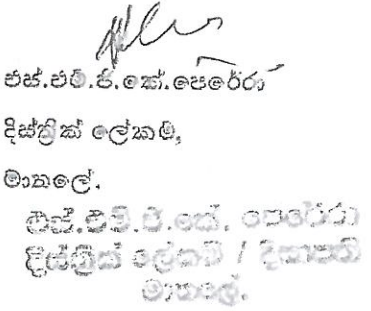 එස්.එම්.ජී.කේ.පෙරේරා
දිස්ත්‍රික් ලේකම්,
මාතලේ.
එස්.එම්.ජී.කේ. පෙරේරා
දිස්ත්‍රික් ලේකම් / දිසාපති
මාතලේ.